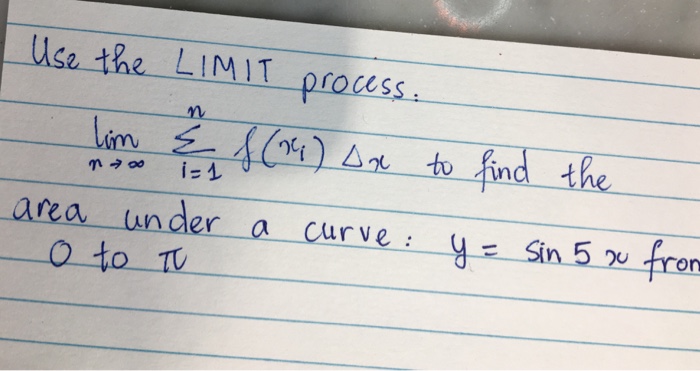 Use the LIMIT process.
lim n→∞ n Σ i=1 f(xi) Δx to find the
area under a curve: y = sin 5x from
0 to π